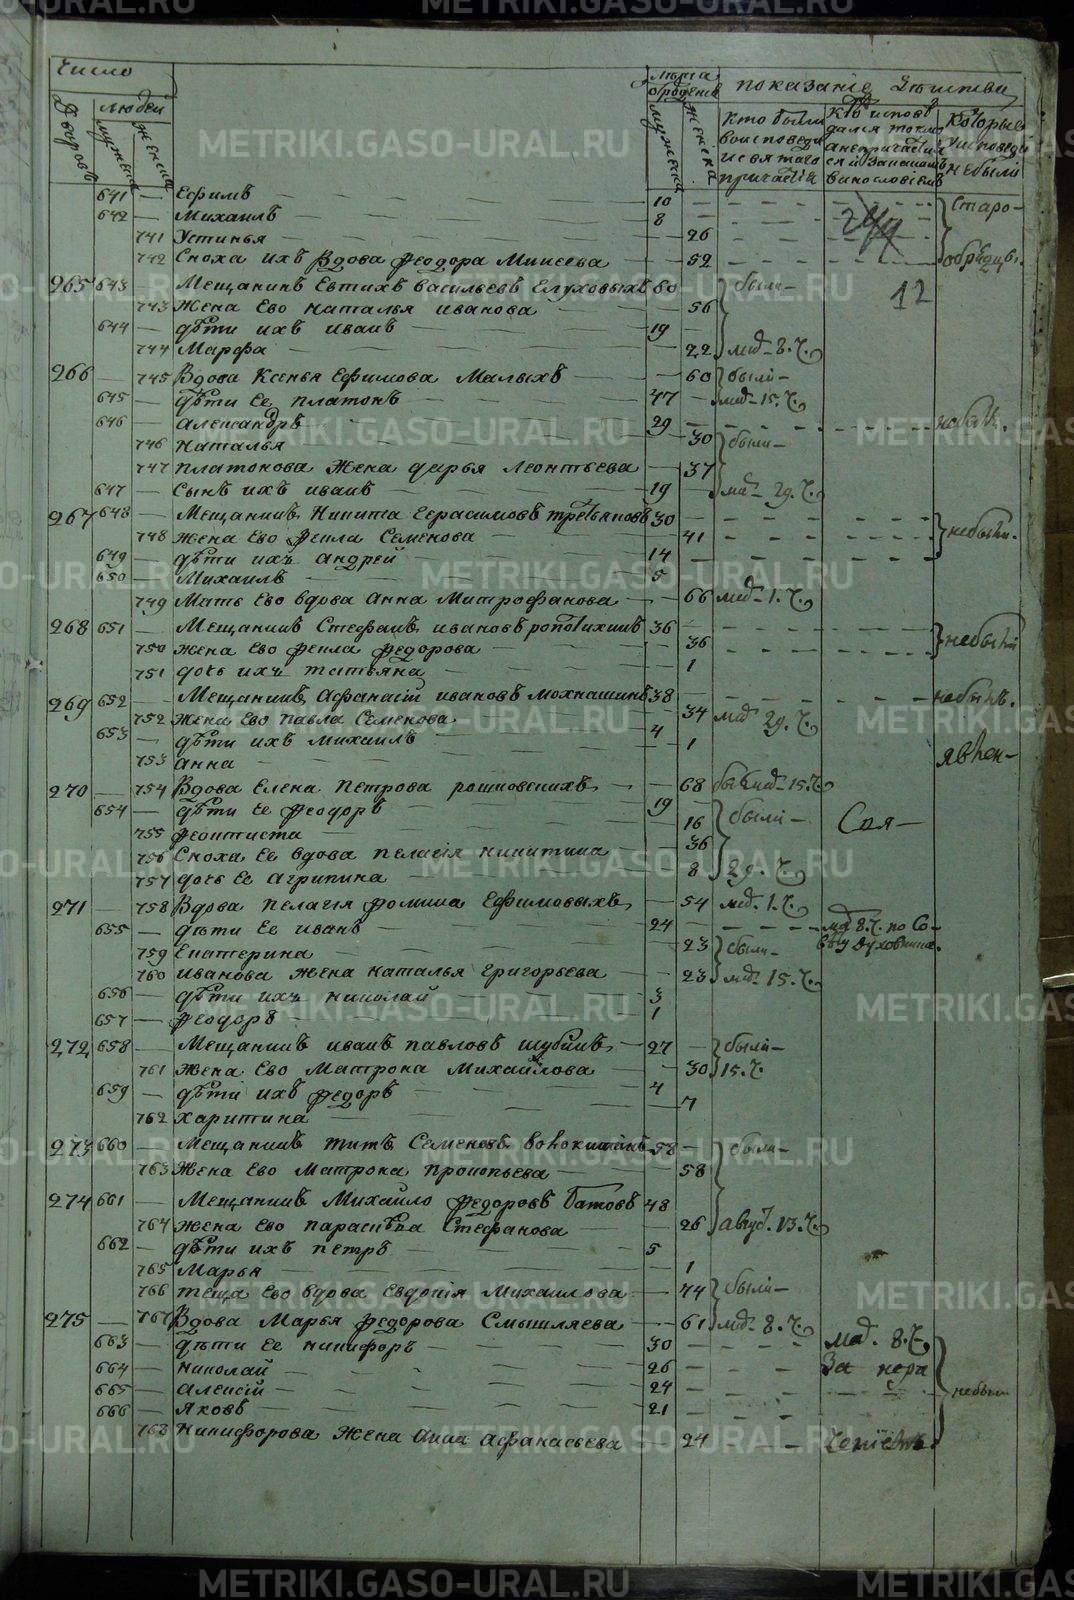 Число
Дворовъ
людей
мужеска
женска
лѣта
Орожденiя
мужеска
женска
показанiе Дѣиства
Кто были
воисповеди
и святаго
причастiя
Кто испов
дался токмо
анепричастил
ся и Закакимъ
винословiемъ
Которые
уисповеди
небыли
641 — Ефимъ — 10
642 — Михаилъ — 8
741 Устинья — 26
742 Сноха ихъ вдова Феодора Минеева — 52
Старо-
обрядцы.
12
265 643 — Мещанинъ Евтихъ васильевъ Елуховыхъ 60 были-
743 Жена Ево наталья иванова — 56
644 — дѣти ихъ иванъ — 19
744 Марфа — 22 мад. 8. ч.
266 — 745 Вдова Ксенья Ефимова Малыхъ — 60 были-
645 — дѣти Ее платонъ — 47 мад. 15. ч.
646 — александръ — 29 небылъ.
746 наталья — 30 были-
747 платонова Жена дарья леонтьева — 37
647 — сынъ ихъ иванъ — 19 мад. 29. ч.
267 648 — Мещанинъ Никита Герасимовъ третьяковъ 30
748 Жена Ево Фекла Семенова — 41 небыли.
649 — дѣти ихъ андрей — 14
650 — Михаилъ — 5
749 Мать Ево вдова анна Митрофанова — 66 мад. 1. ч.
268 651 — Мещанинъ Стефанъ ивановъ 36
750 Жена Ево Фекла Федорова — 36 небыли
751 дочь ихъ татьяна — 1
269 652 — Мещанинъ Афанасiй ивановъ мохнашинъ 38 небылъ.
752 Жена Ево павла Семенова — 34 мад. 29. ч.
653 — дѣти ихъ михаилъ — 4
753 анна — 1
270 — 754 Вдова Елена Петрова — 68 мад. 15. ч.
654 — дѣти Ее Феодоръ — 19
755 Феоктиста — 16 были-
756 Сноха Ее вдова пелагiя никитина — 36
757 дочь Ее агрипина — 8 29. ч.
271 — 758 Вдова пелагiя Фомина Ефимовыхъ — 54 мад. 1. ч.
655 — дѣти Ее иванъ — 24 мад 8. ч. по Со-
вѣту духовника.
759 Екатерина — 23 были-
760 иванова Жена наталья григорьева — 23 мад. 15. ч.
656 — дѣти ихъ николай — 3
657 — Феодоръ — 1
272 658 — Мещанинъ иванъ павловъ шубинъ — 27 были-
761 Жена Ево Матрона Михайлова — 30 15. ч.
659 — дѣти ихъ Федоръ — 4
762 харитина — 7
273 660 — Мещанинъ титъ Семеновъ 58 были-
763 Жена Ево Матрона прокопьева — 58
274 661 — Мещанинъ Михайло Федоровъ батовъ 48
764 Жена Ево парасковья Стефанова — 26 авгус. 13. ч.
662 — дѣти ихъ петръ — 5
765 Марья — 1
766 теща Ево вдова Евдокiя Михаилова — 74 были-
275 — 767 Вдова Марья Федорова Смышляева — 61 мад. 8. ч.
663 — дѣти Ее никифоръ — 30 мад. 8. ч.
664 — николай — 26 За нера
665 — алексiй — 24 небыли
666 — Яковъ — 21
768 Никифорова Жена анна афанасьева — 24
METRIKI.GASO-URAL.RU